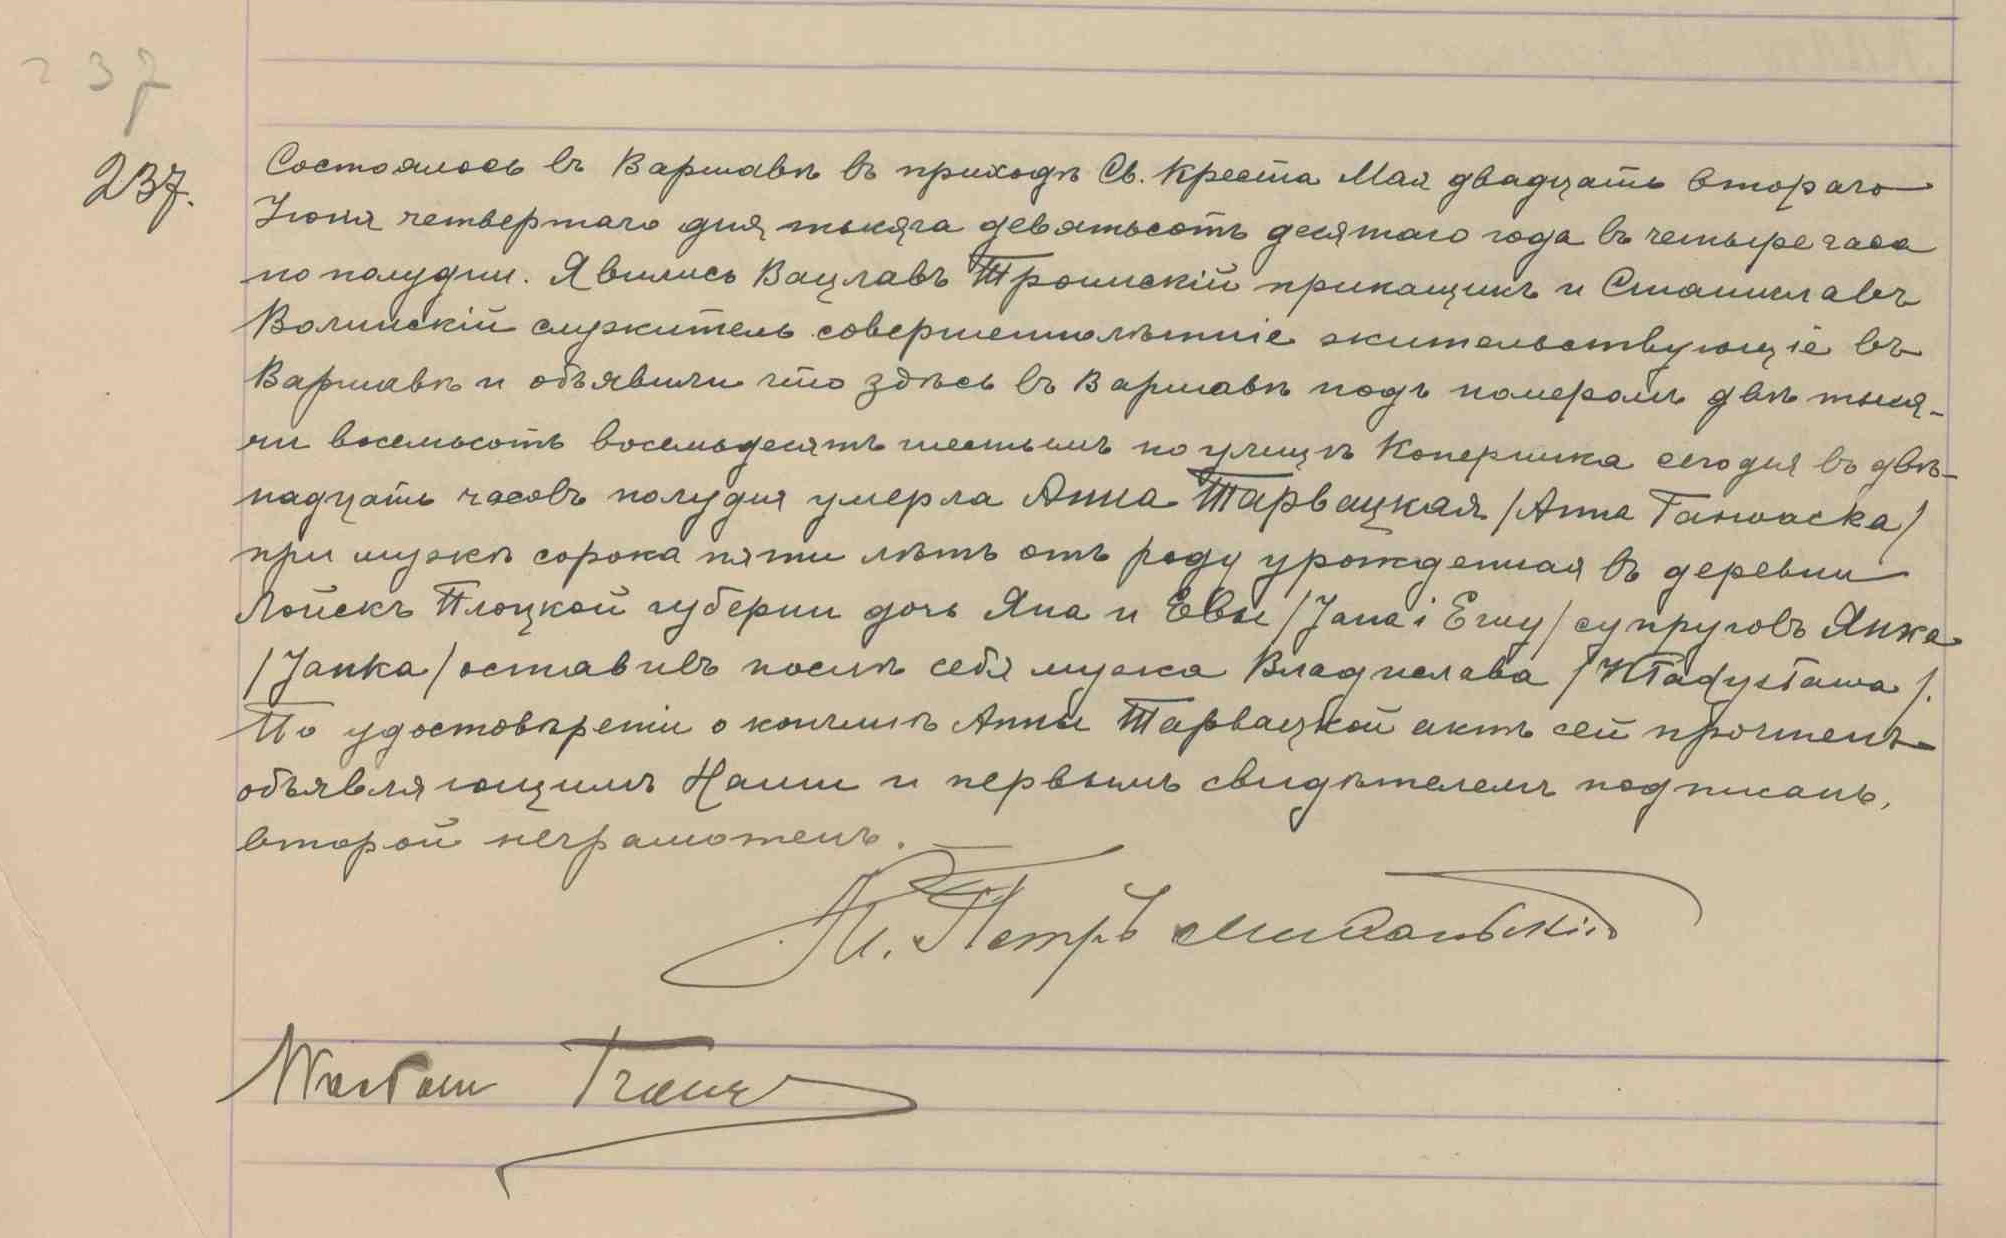 237
237.
Состоялось въ Варшавѣ въ приходѣ Св. Креста Мая двадцать втораго
Iюня четвертаго дня тысяча девятьсотъ десятаго года въ четыре часа
по полудни. Явились Вацлавъ Троинскій прикащикъ и Станиславъ
Волинскій служитель совершеннолѣтніе жительствующіе въ
Варшавѣ и объявили что здѣсь въ Варшавѣ подъ номеромъ двѣ тыся-
чи восемьсотъ восемьдесятъ шестымъ по улицѣ Коперника сегодня въ двѣ-
надцать часовъ полудня умерла Анна Тарвацкая /Anna Tarwacka/
при мужѣ сорока пяти лѣтъ отъ роду урожденная въ деревни
Лойскъ Плоцкой губерніи дочь Яна и Евы /Jana i Ewy/ супруговъ Янка
/Janka/ оставивъ послѣ себя мужа Владислава /Władysława/.
По удостовѣреніи о кончинѣ Анны Тарвацкой актъ сей прочтенъ
объявляющимъ Нами и первымъ свидѣтелемъ подписанъ,
второй неграмотенъ.
Петръ
Wacław